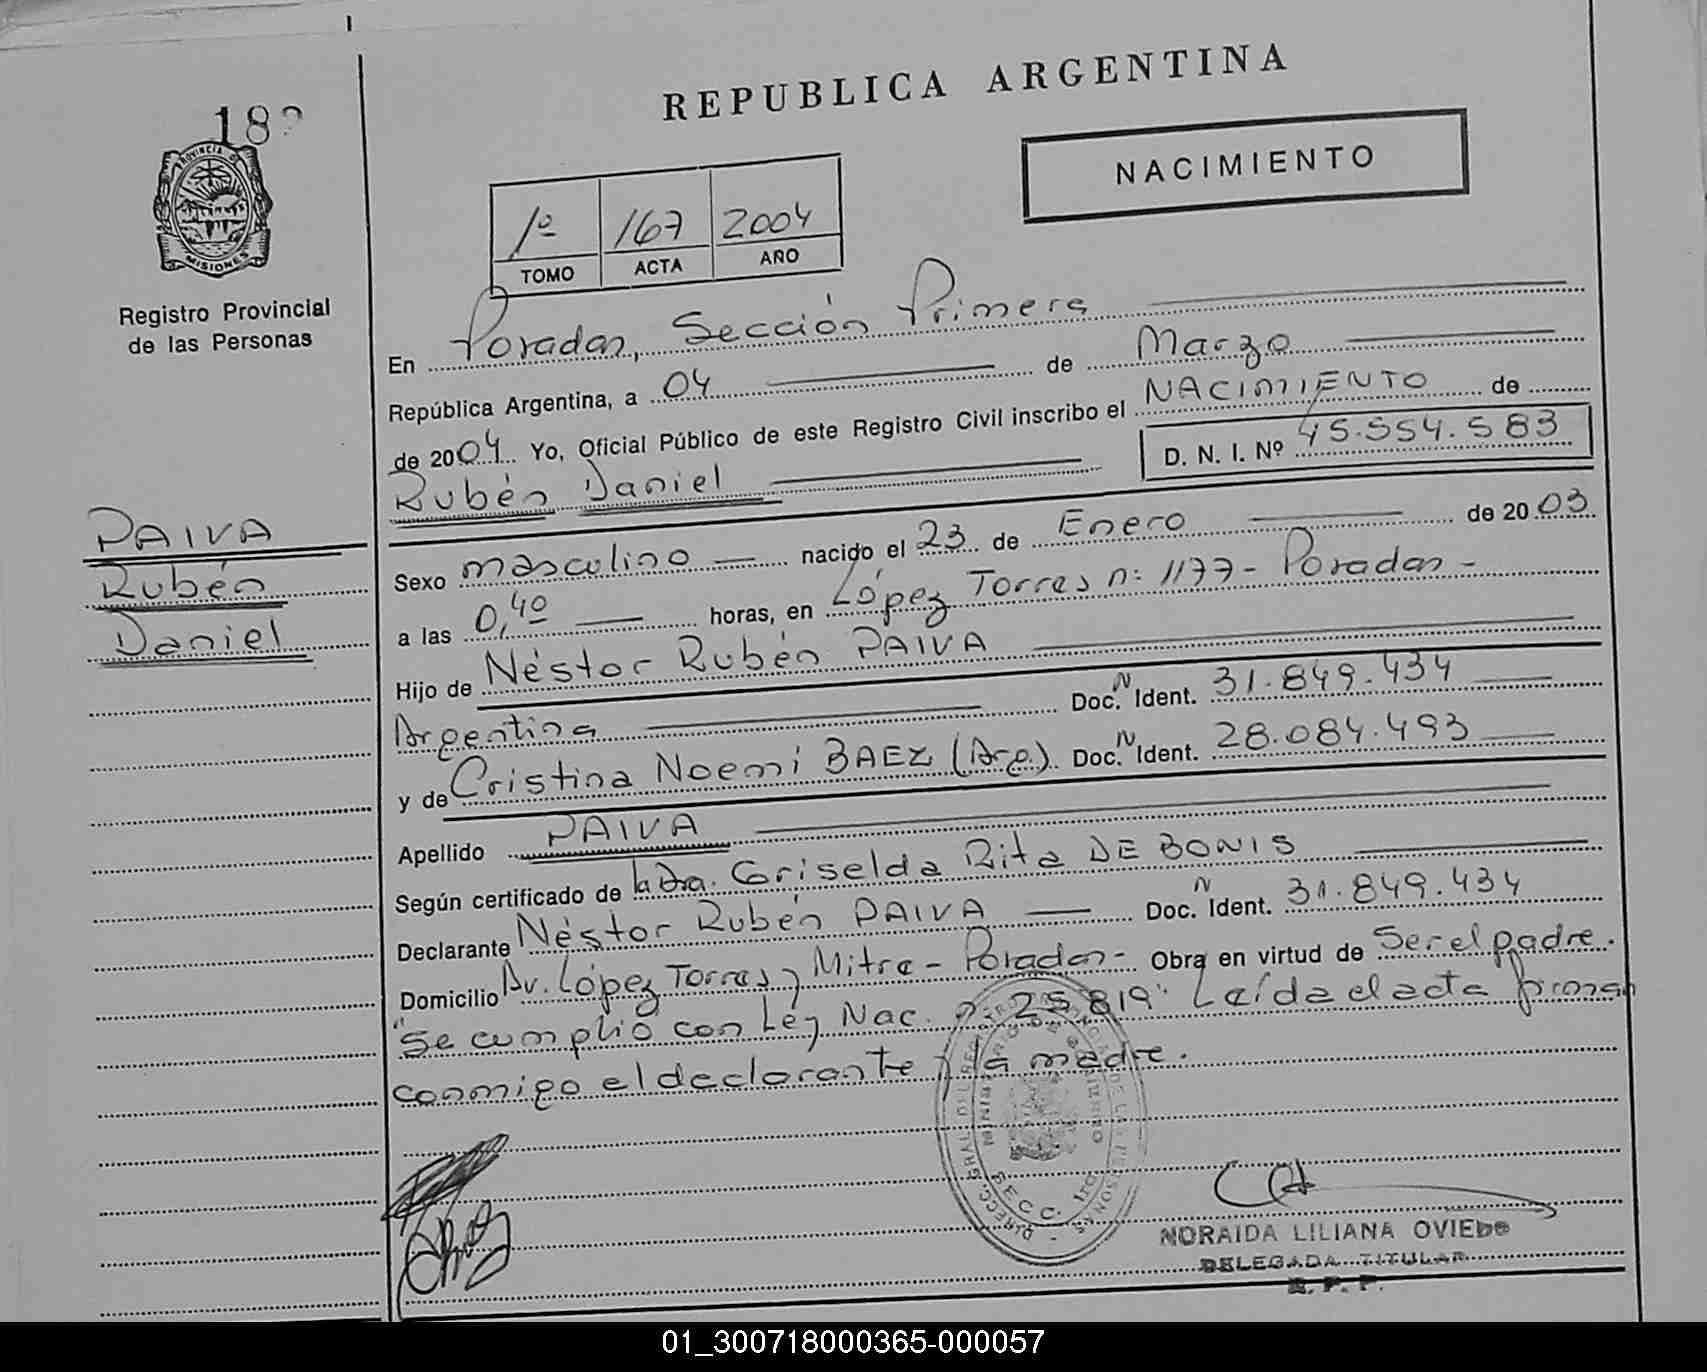 REPUBLICA ARGENTINA
NACIMIENTO
18
PROVINCIA DE
MISIONES
Registro Provincial
de las Personas
1º 167 2004
TOMO ACTA AÑO
En Posadas, Sección Primera
República Argentina, a 04 de Marzo
de 2004 Yo, Oficial Público de este Registro Civil inscribo el NACIMIENTO de
Rubén Daniel D. N. I. Nº 45.554.583
PAIVA
Rubén
Daniel
Sexo masculino nacido el 23 de Enero de 2003
a las 0,40 horas, en López Torres nº 1177 - Posadas -
Hijo de Néstor Rubén PAIVA
Argentina Doc. N Ident. 31.849.434
y de Cristina Noemí BAEZ (Arg.) Doc. N Ident. 28.084.493
Apellido PAIVA
Según certificado de la Dra. Griselda Rita DE BONIS
Declarante Néstor Rubén PAIVA Doc. N Ident. 31.849.434
Domicilio Av. López Torres y Mitre - Posadas - Obra en virtud de Ser el padre.
"Se cumplió con Ley Nac. nº 25.819" Leída el acta firman
conmigo el declarante y la madre.
SECC. 1ra
NORAIDA LILIANA OVIEDO
DELEGADA TITULAR
R. P. P.
01_300718000365-000057